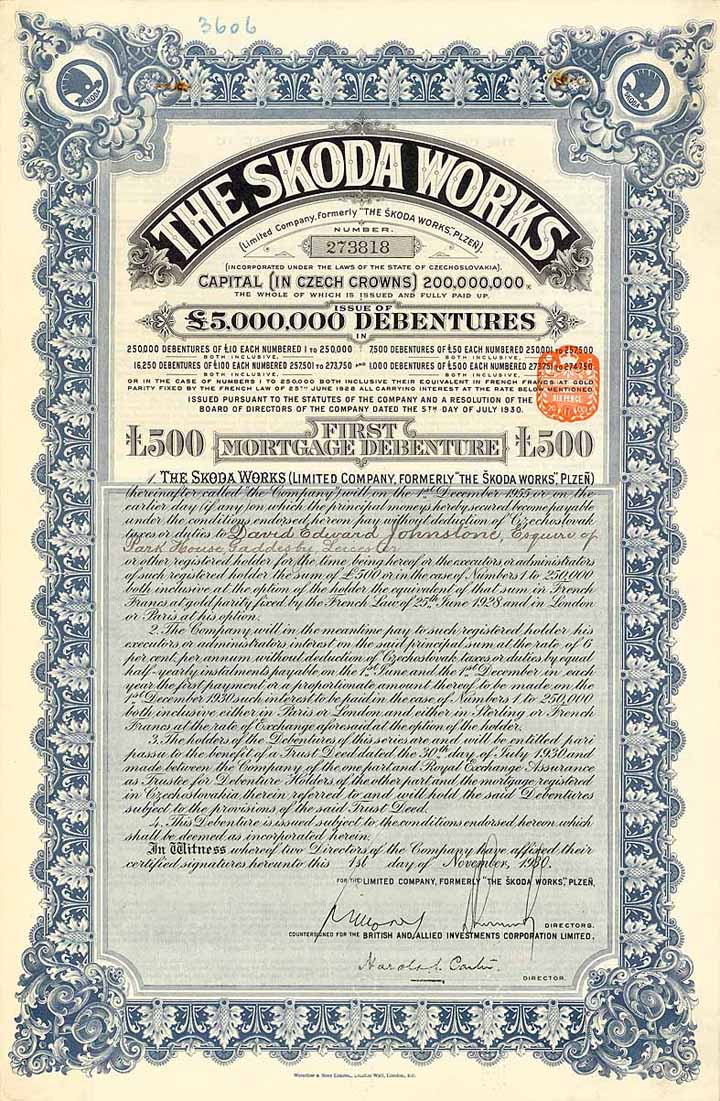 3606
SKODA
SKODA
THE SKODA WORKS
(Limited Company, formerly "THE ŠKODA WORKS", PLZEŇ)
NUMBER.
273818
(INCORPORATED UNDER THE LAWS OF THE STATE OF CZECHOSLOVAKIA).
CAPITAL (IN CZECH CROWNS) 200,000,000
THE WHOLE OF WHICH IS ISSUED AND FULLY PAID UP.
ISSUE OF
£5,000,000 DEBENTURES
IN
250,000 DEBENTURES OF £10 EACH NUMBERED 1 TO 250,000 7,500 DEBENTURES OF £50 EACH NUMBERED 250,001 TO 257,500
BOTH INCLUSIVE, BOTH INCLUSIVE,
16,250 DEBENTURES OF £100 EACH NUMBERED 257,501 TO 273,750 AND 1,000 DEBENTURES OF £500 EACH NUMBERED 273,751 TO 274,750
BOTH INCLUSIVE, BOTH INCLUSIVE,
OR IN THE CASE OF NUMBERS 1 TO 250,000 BOTH INCLUSIVE THEIR EQUIVALENT IN FRENCH FRANCS AT GOLD
PARITY FIXED BY THE FRENCH LAW OF 25TH JUNE 1928 ALL CARRYING INTEREST AT THE RATE BELOW MENTIONED.
SIX PENCE
ISSUED PURSUANT TO THE STATUTES OF THE COMPANY AND A RESOLUTION OF THE
BOARD OF DIRECTORS OF THE COMPANY DATED THE 5TH DAY OF JULY 1930.
£500 FIRST MORTGAGE DEBENTURE £500
1. THE SKODA WORKS (LIMITED COMPANY, FORMERLY "THE ŠKODA WORKS", PLZEŇ)
(hereinafter called "the Company") will on the 1st December 1955 or on the
earlier day (if any) on which the principal moneys hereby secured become payable
under the conditions endorsed hereon pay without deduction of Czechoslovak
taxes or duties to David Edward Johnstone, Esquire of
Park House, Gaddesby, Leicester
or other registered holder for the time being hereof or the executors or administrators
of such registered holder the sum of £500 or in the case of Numbers 1 to 250,000
both inclusive at the option of the holder the equivalent of that sum in French
Francs at gold parity fixed by the French Law of 25th June 1928 and in London
or Paris at his option.
2. The Company will in the meantime pay to such registered holder his
executors or administrators interest on the said principal sum at the rate of 6
per cent. per annum without deduction of Czechoslovak taxes or duties by equal
half-yearly instalments payable on the 1st June and the 1st December in each
year the first payment or a proportionate amount thereof to be made on the
1st December 1930 such interest to be paid in the case of Numbers 1 to 250,000
both inclusive either in Paris or London and either in Sterling or French
Francs at the rate of Exchange aforesaid at the option of the holder.
3. The holders of the Debentures of this series are and will be entitled pari
passu to the benefit of a Trust Deed dated the 30th day of July 1930 and
made between the Company of the one part and Royal Exchange Assurance
as Trustee for Debenture Holders of the other part and the mortgage registered
in Czechoslovakia therein referred to and will hold the said Debentures
subject to the provisions of the said Trust Deed.
4. This Debenture is issued subject to the conditions endorsed hereon which
shall be deemed as incorporated herein.
In Witness whereof two Directors of the Company have affixed their
certified signatures hereunto this 1st day of November, 1930.
FOR THE LIMITED COMPANY, FORMERLY "THE ŠKODA WORKS", PLZEŇ,
DIRECTORS.
COUNTERSIGNED FOR THE BRITISH AND ALLIED INVESTMENTS CORPORATION LIMITED,
Harold
DIRECTOR.
Waterlow & Sons Limited, London Wall, London, E.C.